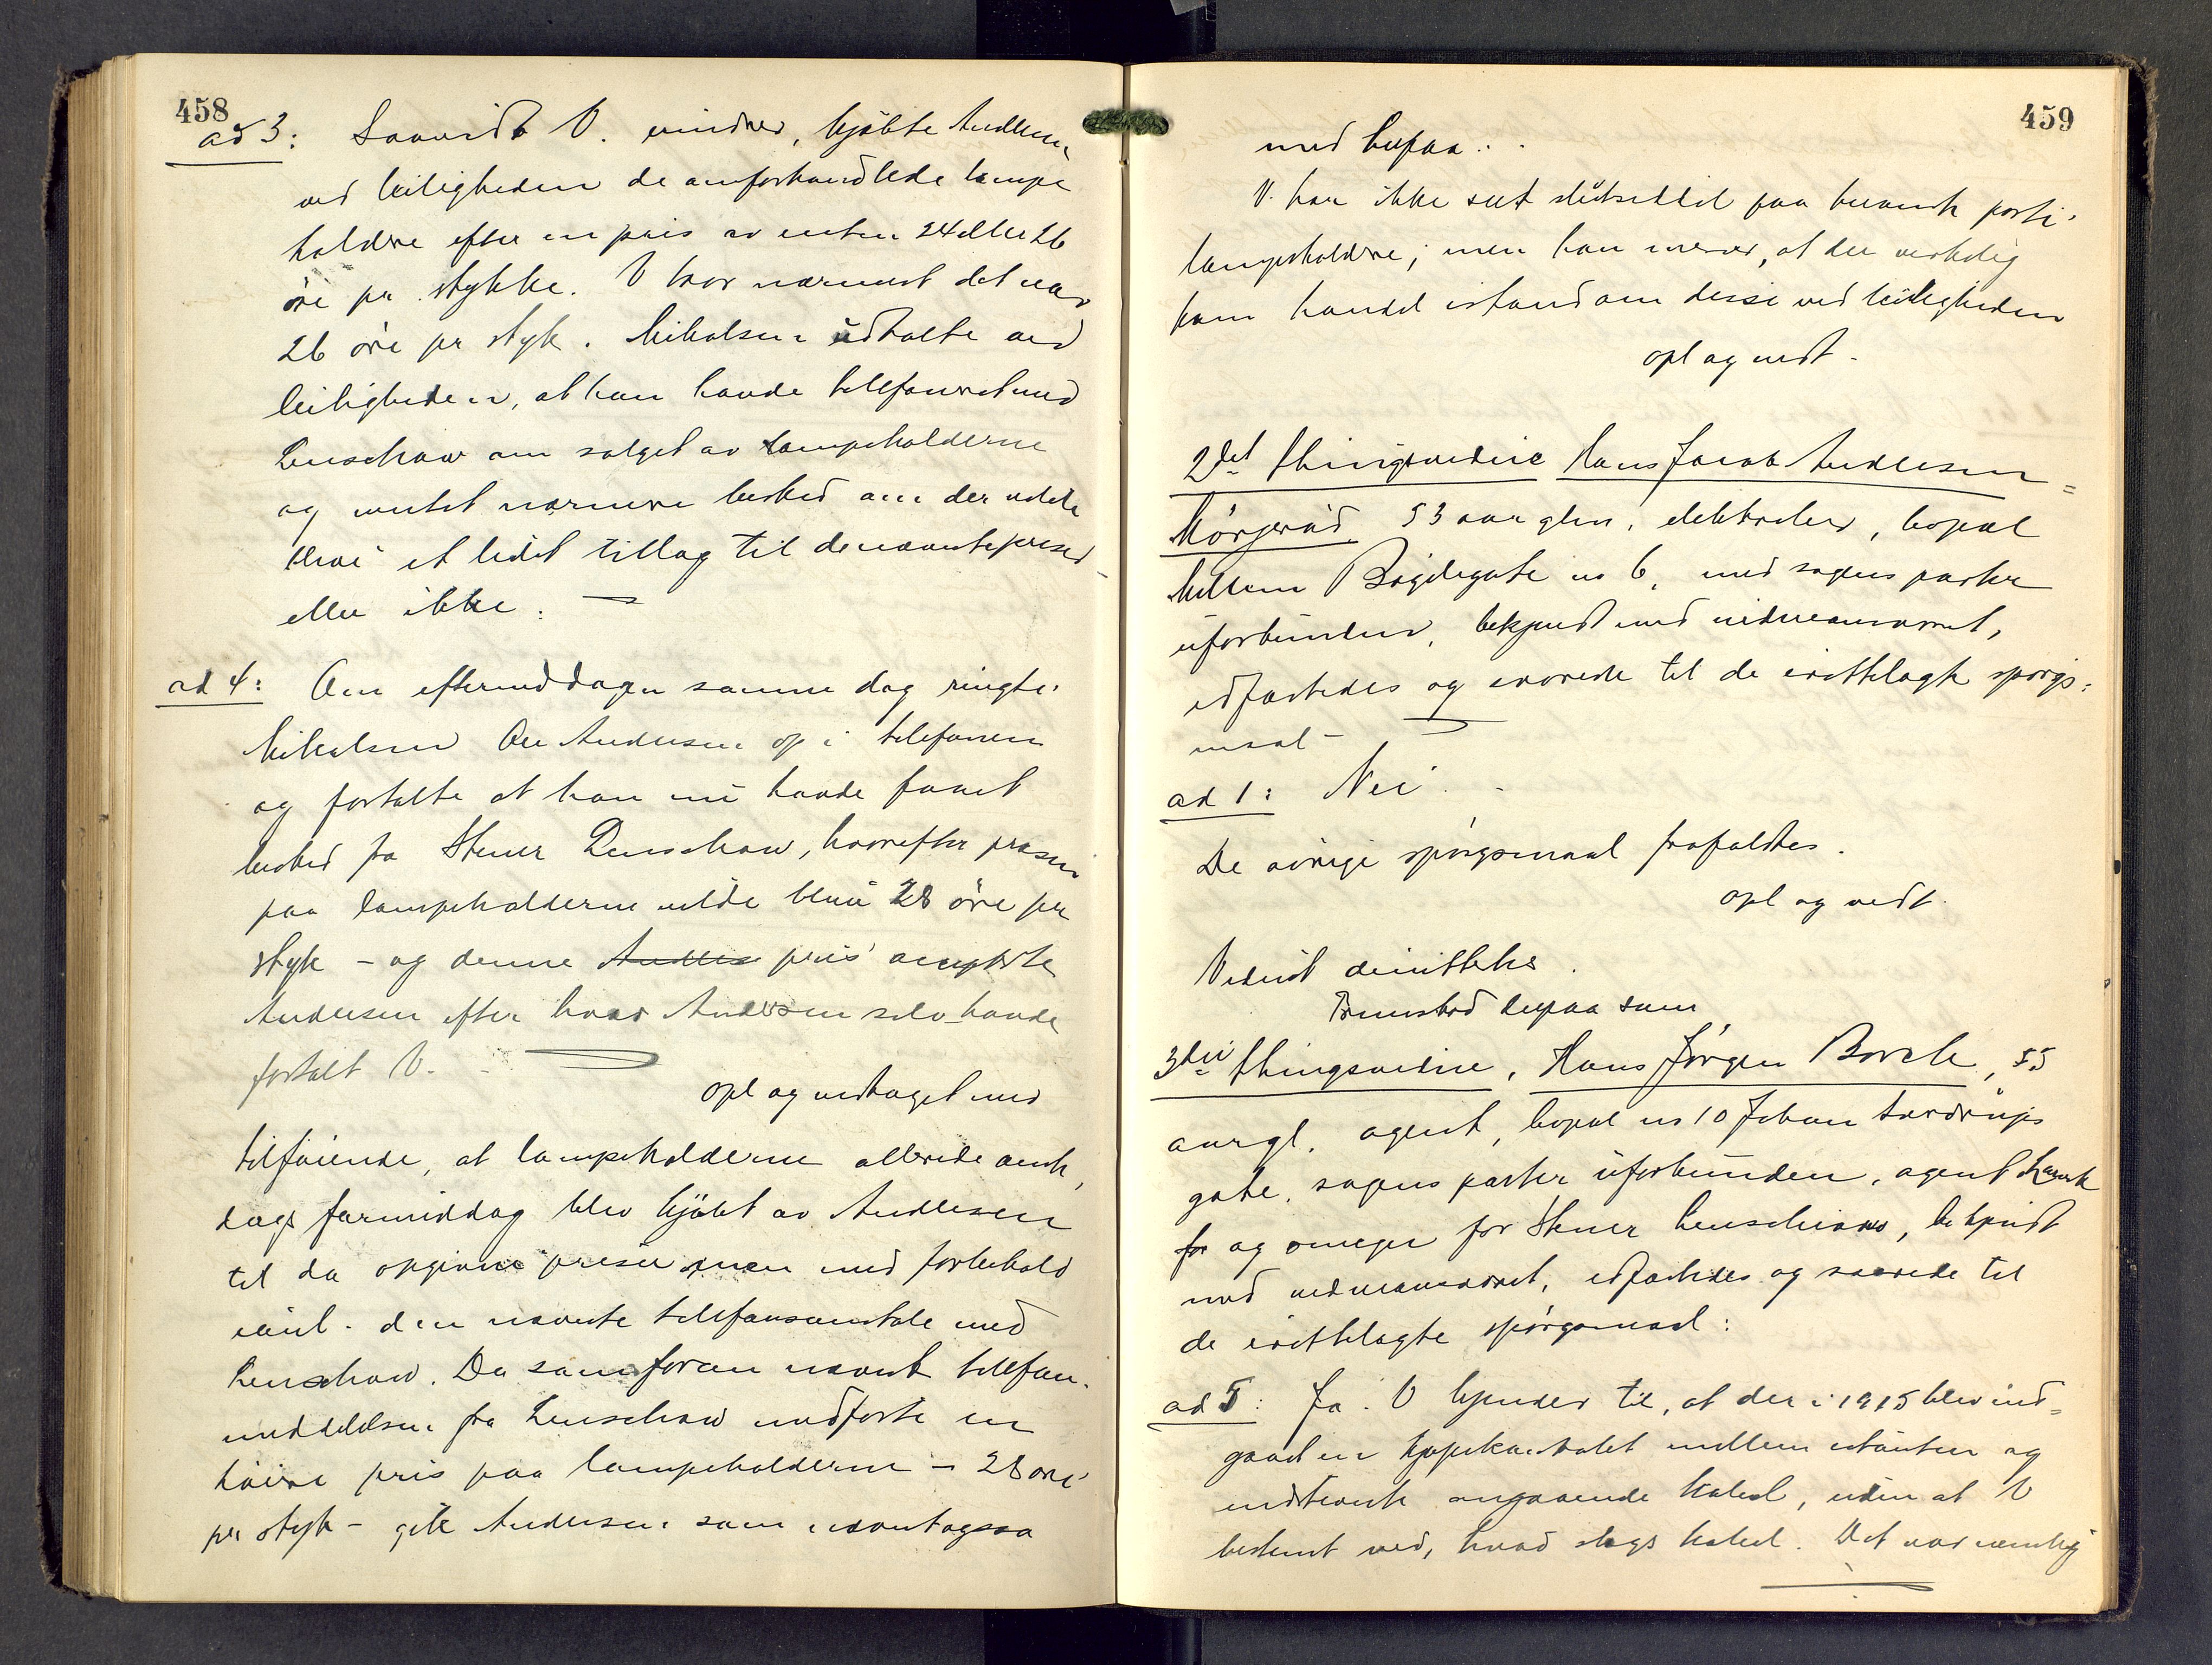 458
ad 3: Saavidt V. mindes, kjøbte Andersen
ved leiligheden de omforhandlede lampe
holdere efter en pris av enten 24 eller 26
øre pr. stykke. V tror nærmest det var
26 øre pr styk. Mikalsen udtalte ved
leiligheden, at han havde telefoneret med
Lenschow om salget av lampeholderne
og ventet nærmere besked om der vilde
blive et lidet tillæg til de nævnte priser
eller ikke.
ad 4: Om eftermiddagen samme dag ringte
Mikalsen Andersen op i telefonen
og fortalte at han nu havde faaet
besked fra Stener Lenschow, hvorefter prisen
paa lampeholderne vilde blive 28 øre pr
styk – og denne pris accepterte
Andersen efter hvad Andersen selv havde
fortalt V.
opl og vedtaget med
tilføiende, at lampeholderne allerede
dags formiddag blev kjøbt av Andersen
til da opgivne priser men med forbehold
den nævnte telefonsamtale med
Lenschow. Da som foran nævnt telefon-
meddelelsen fra Lenschow medførte en
høiere pris paa lampeholderne – 28 øre
pr styk – gik Andersen som nævnt ogsaa
459
med herpaa.
V. har ikke set slutseddel paa parti
lampeholdere; men han mener, at der virkelig
kom handel istand om disse ved leiligheden
opl og vedt.
2det thingsvidne Hans Jacob Andersen
53 aar glm, elektriker, bopæl
Mellem Bøgdegate no 6, med sagens parter
uforbunden, bekjendt med vidneansvaret,
edfæstedes og svarede til de irettelagte spørgs-
maal
ad 1: Nei.
De øvrige spørgsmaal frafaldtes.
opl og vedt.
Vidnet dimitteres.
Fremstod derpaa som
3die thingsvidne, Hans Jørgen Borch, 55
aar gl. agent, bopæl no 10 Johan Sverdrups
gate. sagens parter uforbunden, agent
for og omegn for Stener Lenschow, bekjendt
med vidneansvaret, edfæstedes og svarede til
de irettelagte spørgsmaal:
ad 5: Ja. V kjender til, at der i 1915 blev ind-
gaaet en kjøpekontrakt mellem citanten og
indstevnte angaaende kabel, uden at V
bestemt ved, hvad slags kabel. Det var nemlig